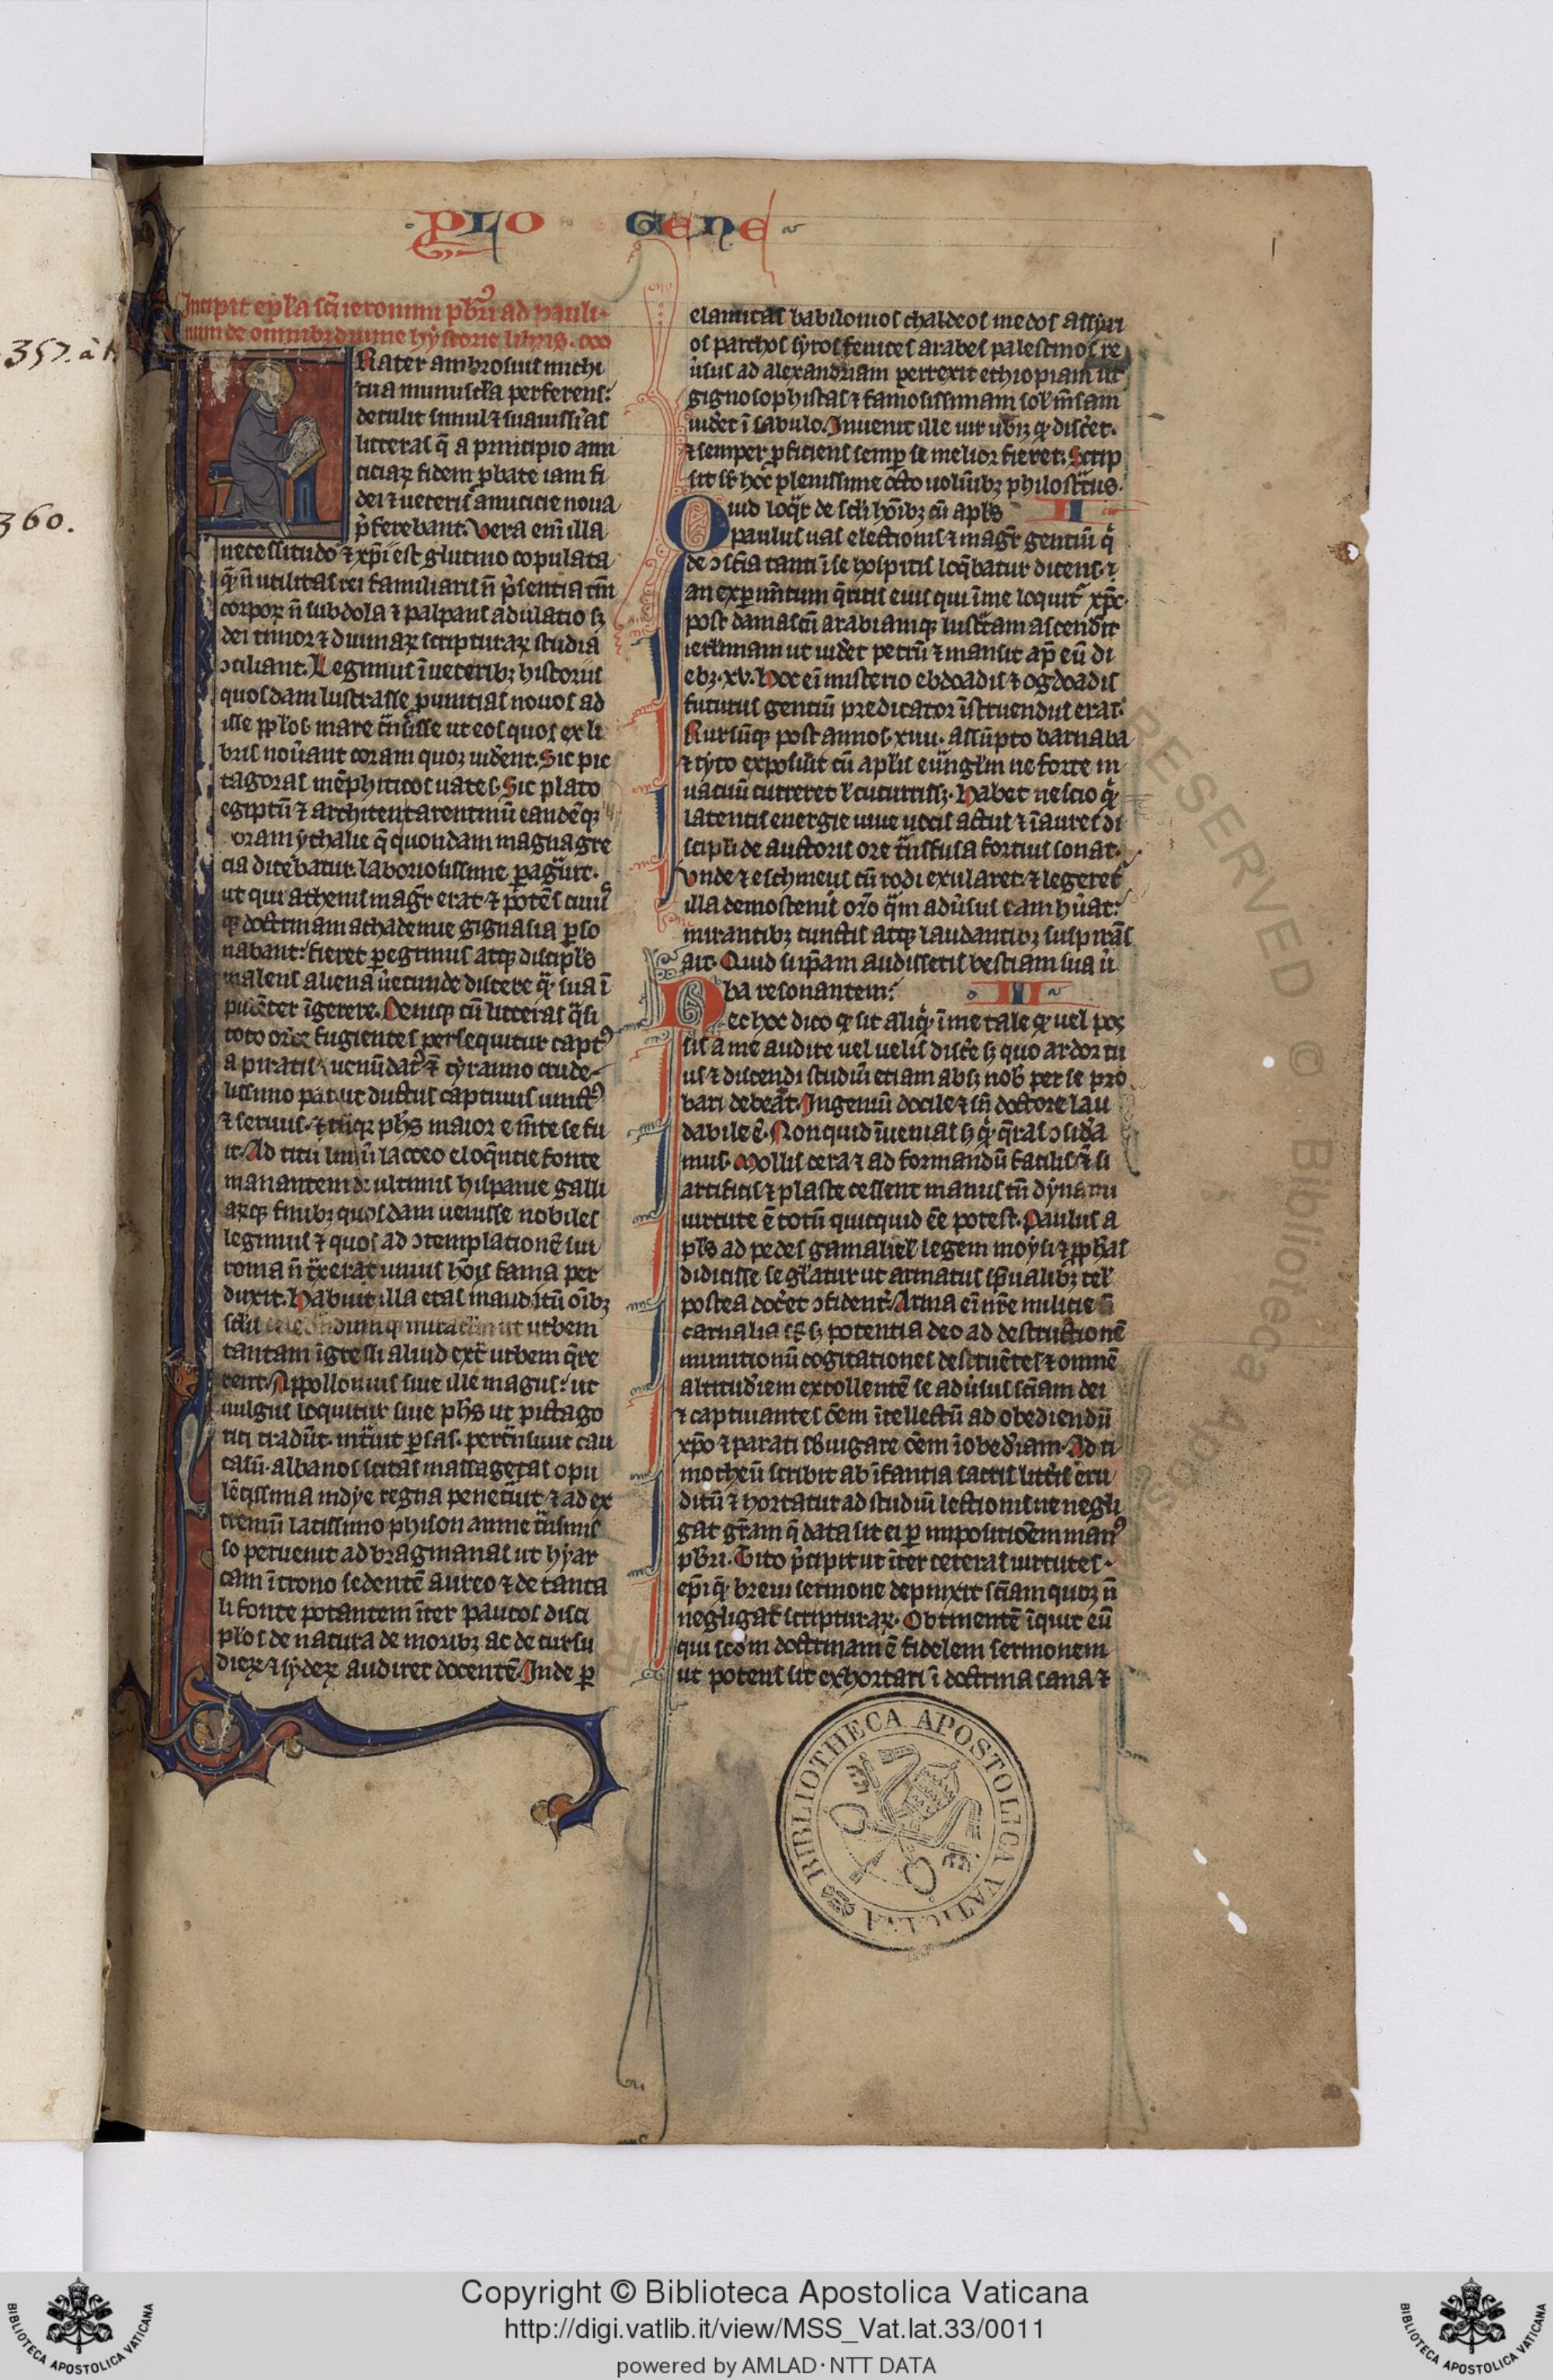 PLO GENE
1
357. a t
360.
Incipit epl'a sc̄i ieronimi pb̄ri ad pauli-
num de omnibꝫ diuine hystorie libris. ca
Rater ambrosius michi
tua munuscl'a perferens:
detulit simul ⁊ suauissi͛as
litteras q̄ a principio ami
ticiaꝝ fidem ꝓbate iam fi
dei ⁊ ueteris amicicie noua
p͛ferebant. Vera em̄ illa
necessitudo ⁊ xp̄i est glutino copulata
q̄͛ n̄ utilitas rei familiaris n̄ p͛sentia tm̄
corpoꝝ n̄ subdola ⁊ palpans adulatio sꝫ
dei timor ⁊ diuinaꝝ scripturaꝝ studia
ↄciliant. Legimus ī ueteribꝫ historiis
quosdam lustrasse ꝓuintias nouos ad
isse pp̄l'os mare t͛nsisse ut eos quos ex li
bris nou͛ant coram quoꝫ uid͛ent. Sic pic
tagoras mēphiticos uates. Sic plato
egiptū ⁊ architen tarentinū eandēqꝫ
oram ythalie q̄ quondam magna gre
cia dicebatur. laboriosissime ꝑag͛uit.
ut qui athenis magr̄ erat ⁊ potēs cuiu͛
qꝫ doctrinam achademie gignasia ꝑso
nabant: fieret ꝑegrinus atqꝫ discipl's
malens aliena u͛ecunde discere q͛ sua ī
pudēter īgerere. Deniqꝫ cū litteras q͛si
toto orbe fugientes persequitur capt᾿
a piratis ⁊ uenūdat᾿ ⁊ tyranno crude-
lissimo paruit ductus captiuus uinct᾿
⁊ seruus. ⁊ tn̄ qꝛ phs maior em̄te se fu
it. Ad titū liuiū lacteo eloq̄ntie fonte
manantem de ultimis hispanie galli
aꝝqꝫ finibꝫ quosdam uenisse nobiles
legimus ⁊ quos ad ↄtemplationē sui
roma n̄ t͛xerat unius hōis fama per
duxit. Habuit illa etas inauditū oībꝫ
sc̄lis celebrandumqꝫ miraculum ut urbem
tantam īgressi aliud ext͛ urbem q̄re
rent. Appollonius siue ille magus: ut
uulgus loquitur siue phs ut pictago
rici tradūt. int͛uit ꝑsas. pert͛nsiuit cau
casū. albanos scitas massagetas opu
lētissima indye regna penet͛uit ⁊ ad ex
tremū latissimo phison amne t͛nsmis
so peruenit ad bragmanas ut hyar
cam ī trono sedentē aureo ⁊ de tanta
li fonte potantem īter paucos disci
pl'os de natura de moribꝫ ac de cursu
dieꝝ ⁊ sydeꝝ audiret docentē. Inde ꝑ
elamitas babilonios chaldeos medos assyri
os parthos syros fenices arabes palestinos re
u͛sus ad alexandriam perrexit ethiopiam ut
gignosophistas ⁊ famosissimam sol' m̄sam
uid͛et ī sabulo. Inuenit ille uir ubiꝫ qꝫ disc͛et.
⁊ semper ꝓficiens semꝑ se melior fieret. Scrip
sit sr̄ hoc plenissime octo uolu͛ibꝫ philost͛tus.
Quid loq͛r de sc̄li hōibꝫ cū apl's II
paulus uas electionis ⁊ magr̄ gentiū q͛
de ↄscīa tanti ī se hospitis loq̄batur dicens. ⁊
an exꝑimtum q̄ritis eius qui ī me loquit᾿ xp̄c.
post damascū arabiamqꝫ lust͛tam ascendit
ierl̄imam ut uid͛et petrū ⁊ mansit ap̄ eū di
ebꝫ. xv. Hoc ei͛ misterio ebdoadis ⁊ ogdoadis
futurus gentiū predicator īstruendus erat.
Rursūqꝫ post annos. xiiii. assūpto barnaba
⁊ tyto exposuit cū aplīs eūnglm̄ ne forte in
uacuū curreret l' cucurriss͛. Habet nescio q͛
latentis energie uiue uocis actus ⁊ ī aures di
scipl'i de auctoris ore t͛nsfusa fortius sonat.
Vnde ⁊ eschineus cū rodi exularet. ⁊ legeret᾿
illa demostenis or̄o q͛m adu͛sus eam hūat:
mirantibꝫ cunctis atqꝫ laudantibꝫ suspirās
ait. Quid si ip̄am audissetis bestiam sua u͛
ba resonantem: III
Nec hoc dico qꝫ sit aliq͛ ī me tale qꝫ uel pos
sis a me audire uel uelis disc͛e sꝫ quo ardor tu
us ⁊ discendi studiū etiam absꝫ nob' per se pro
bari debeat. Ingeniū docile ⁊ sn̄ doctore lau
dabile ē. Non quid īuenias sꝫ q͛ q̄ras ↄsid͛a
mus. Mollis cera ⁊ ad formandū facilis ⁊ si
artificis ⁊ plaste cessent manus tn̄ dynami
uirtute ē totū quicquid ēe potest. Paulus a
pl's ad pedes gamaliel' legem moysi ⁊ ꝓphas
didicisse se gl'atur ut armatus sp̄ualibꝫ tel'
postea doc͛et ↄfident᾿. Arma ei͛ nr̄e milicie n̄
carnalia st̄ sꝫ potentia deo ad destructionē
munitionū cogitationes destruētes ⁊ omnē
altitudi͛em extollentē se adu͛sus scīam dei
⁊ captiuantes oēm ītellectū ad obediendū
xp̄o ⁊ parati s̄biugare oēm īobed͛iam. Ad ti
motheū scribit ab īfantia sacris litt͛is eru
ditū ⁊ hortatur ad studiū lectionis ne negli
gat gr̄am q̄ data sit ei ꝑ impositi͛oem man᾿
pb̄ri. Tito p͛cipit ut īter ceteras uirtutes.
ep̄i q͛ breui sermone depinxit scīam quoꝫ n̄
negligat scripturaꝝ. Obtinentē īquit eū
qui scd̄m doctrinam ē fidelem sermonem
ut potens sit exhortari ī doctrina sana ⁊
BIBLIOTHECA APOSTOLICA VATICANA
RESERVED © Biblioteca Apos
Copyright © Biblioteca Apostolica Vaticana
http://digi.vatlib.it/view/MSS_Vat.lat.33/0011
powered by AMLAD·NTT DATA
BIBLIOTECA APOSTOLICA VATICANA
BIBLIOTECA APOSTOLICA VATICANA